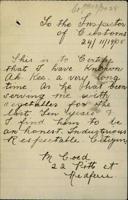 To the Inspector
of Customs
24/11/1905
This is to Certify
that I have known
Ah Kee. a very long
time as he has been
serving me with
vegetables for the
last ten years &
I find them to be
an honest. Industrious
Respectable Citizen
M Coed
22 Pitt st
Redfern